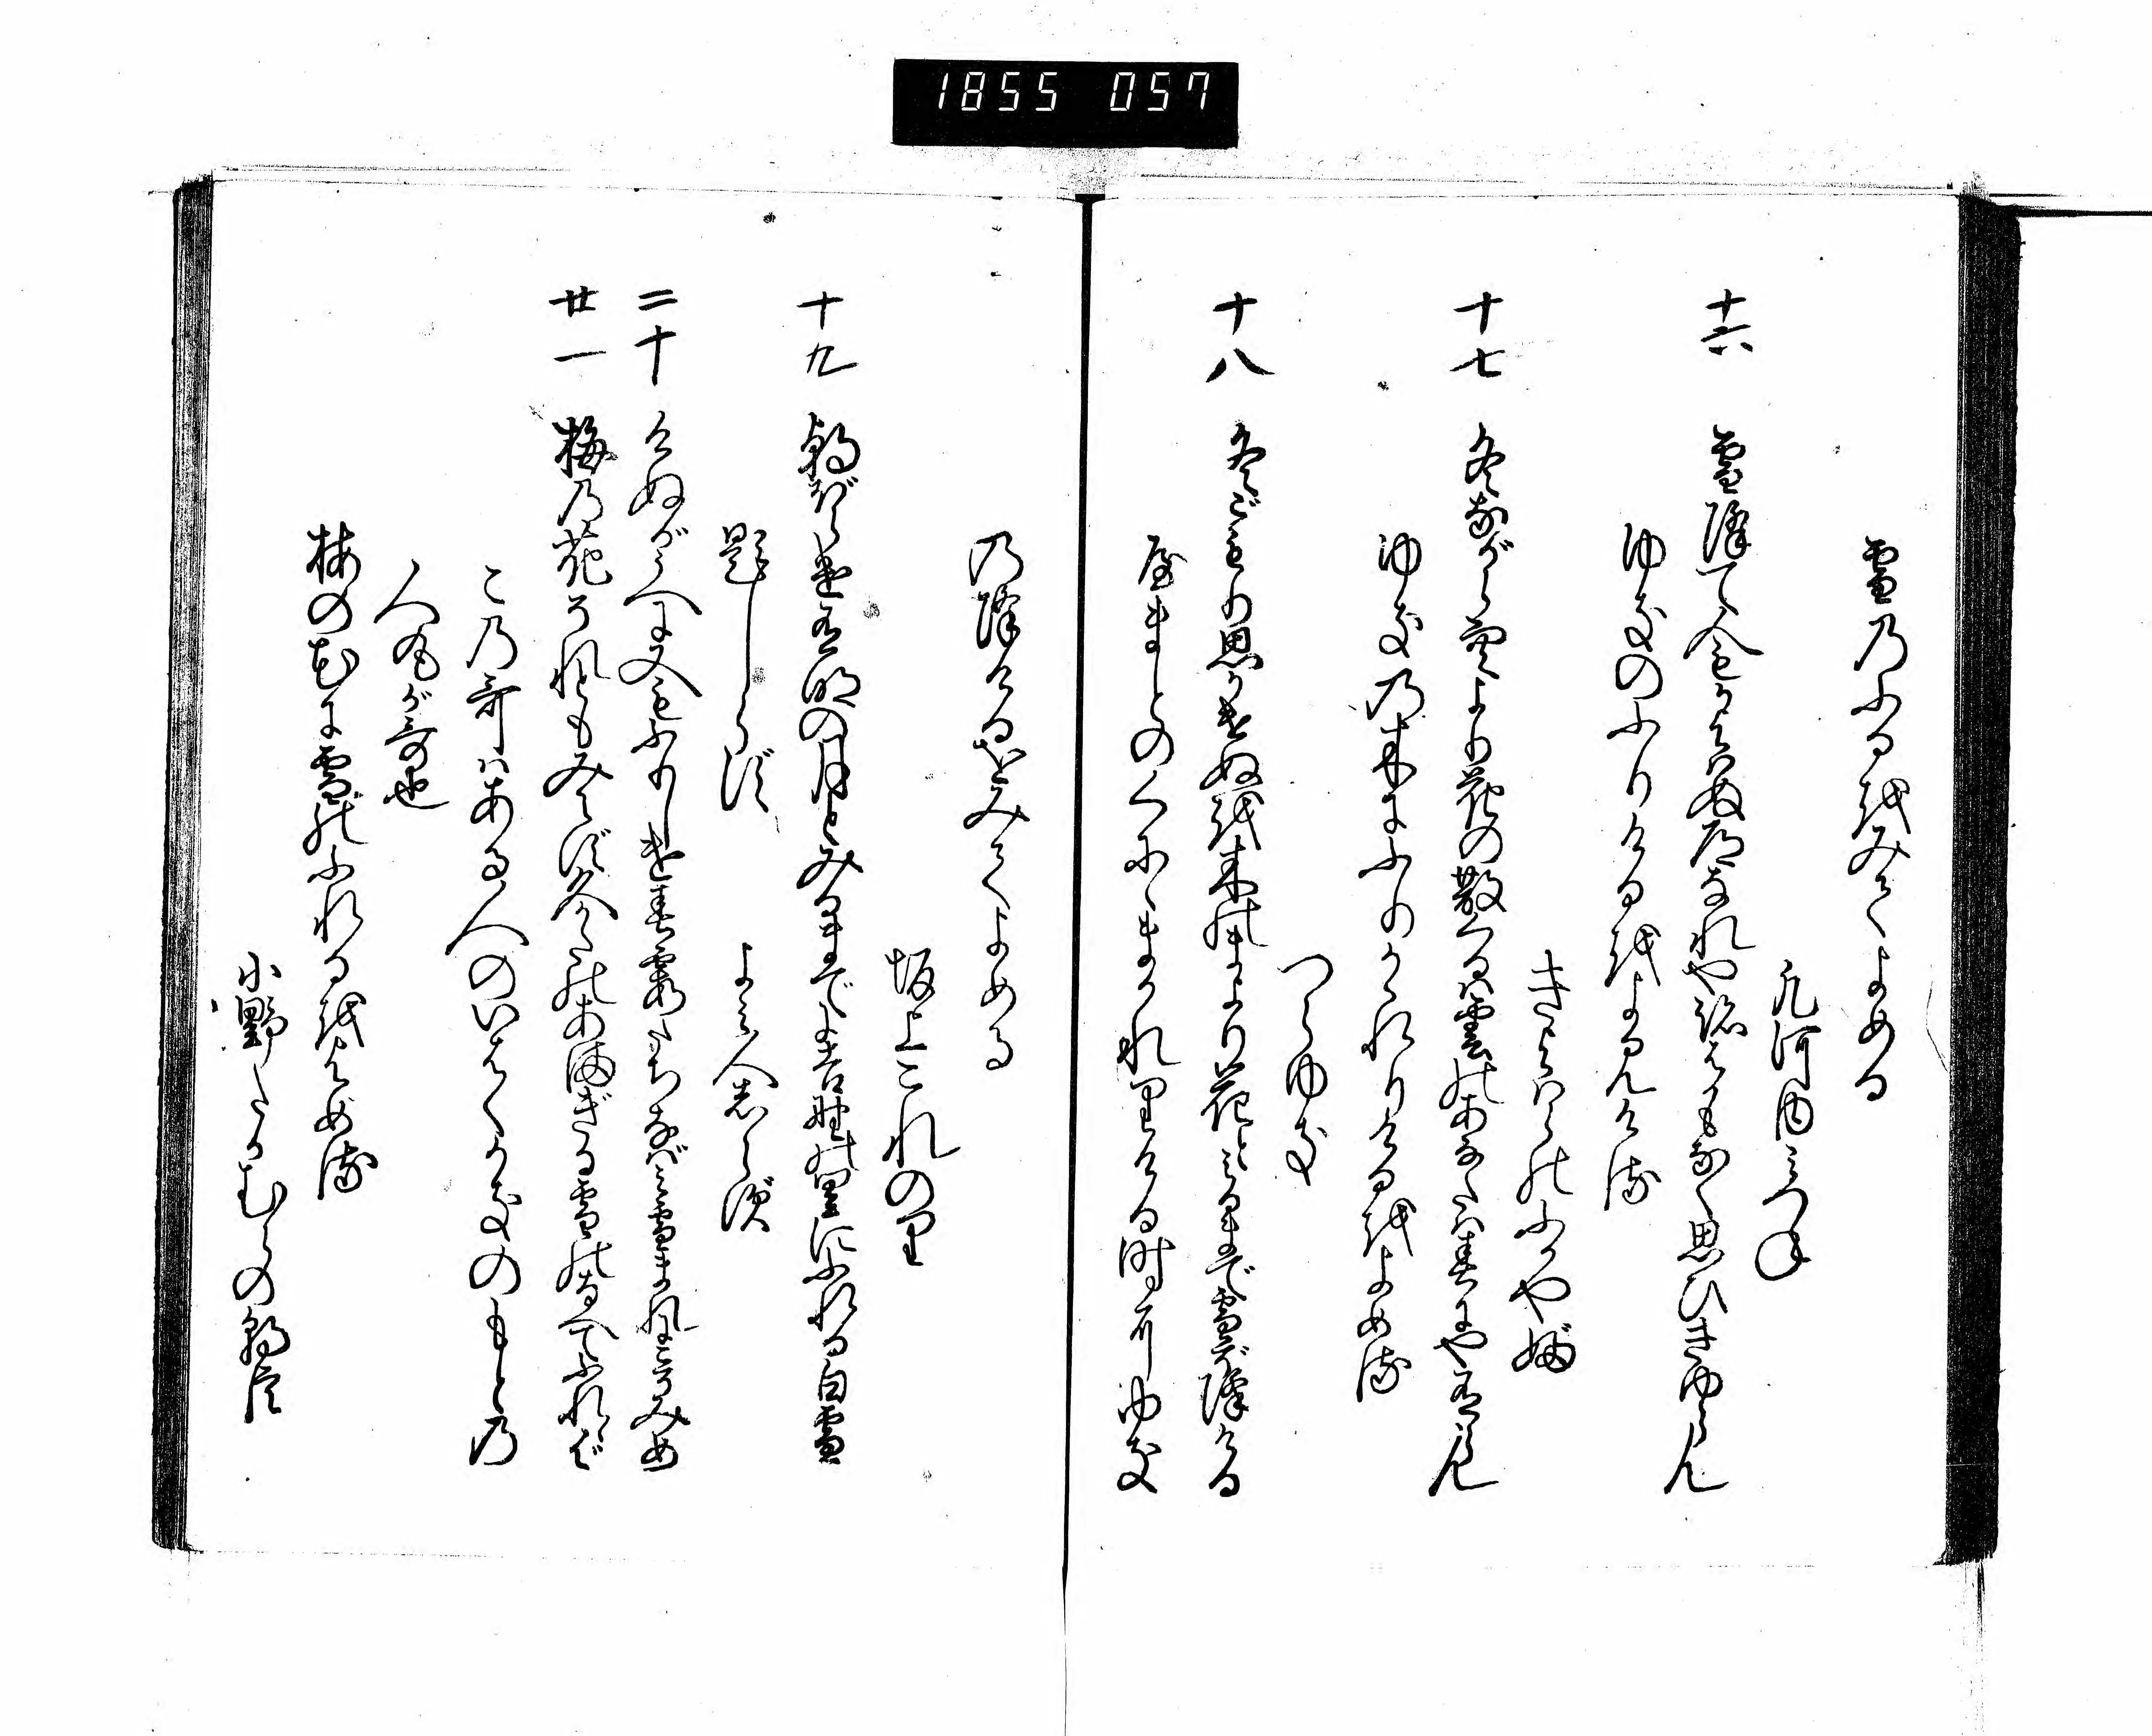 1855 057
雪のふるをみてよめる
凡河内みつね
十六 雪降て人もかよはぬ道なれや跡はかもなく思ひきゆらん
ゆきのふりけるをよみける
きよはらのふかやぶ
十七 冬ながら空より花の散くるは雲のあなたは春にや有らん
ゆきの木にふりかゝれりけるをよめる
つらゆき
十八 冬ごもり思かけぬを木のまより花とみるまで雪ぞ降ける
やまとのくにゝまかれりける時にゆき
の降けるをみてよめる
坂上これのり
十九 朝ぼらけ有明の月とみるまでよ吉野の里にふれる白雪
題しらず
よみ人志らず
二十 けぬがうへに又もふりしけ春霞たちなばみ雪まれにこそみめ
廿一 梅の花それともみえず久かたのあまぎる雪のなべてふれゝば
この哥はある人のいはくかきのもとの
人丸が哥也
梅の花に雪のふれるをよめる
小野たかむらの朝臣